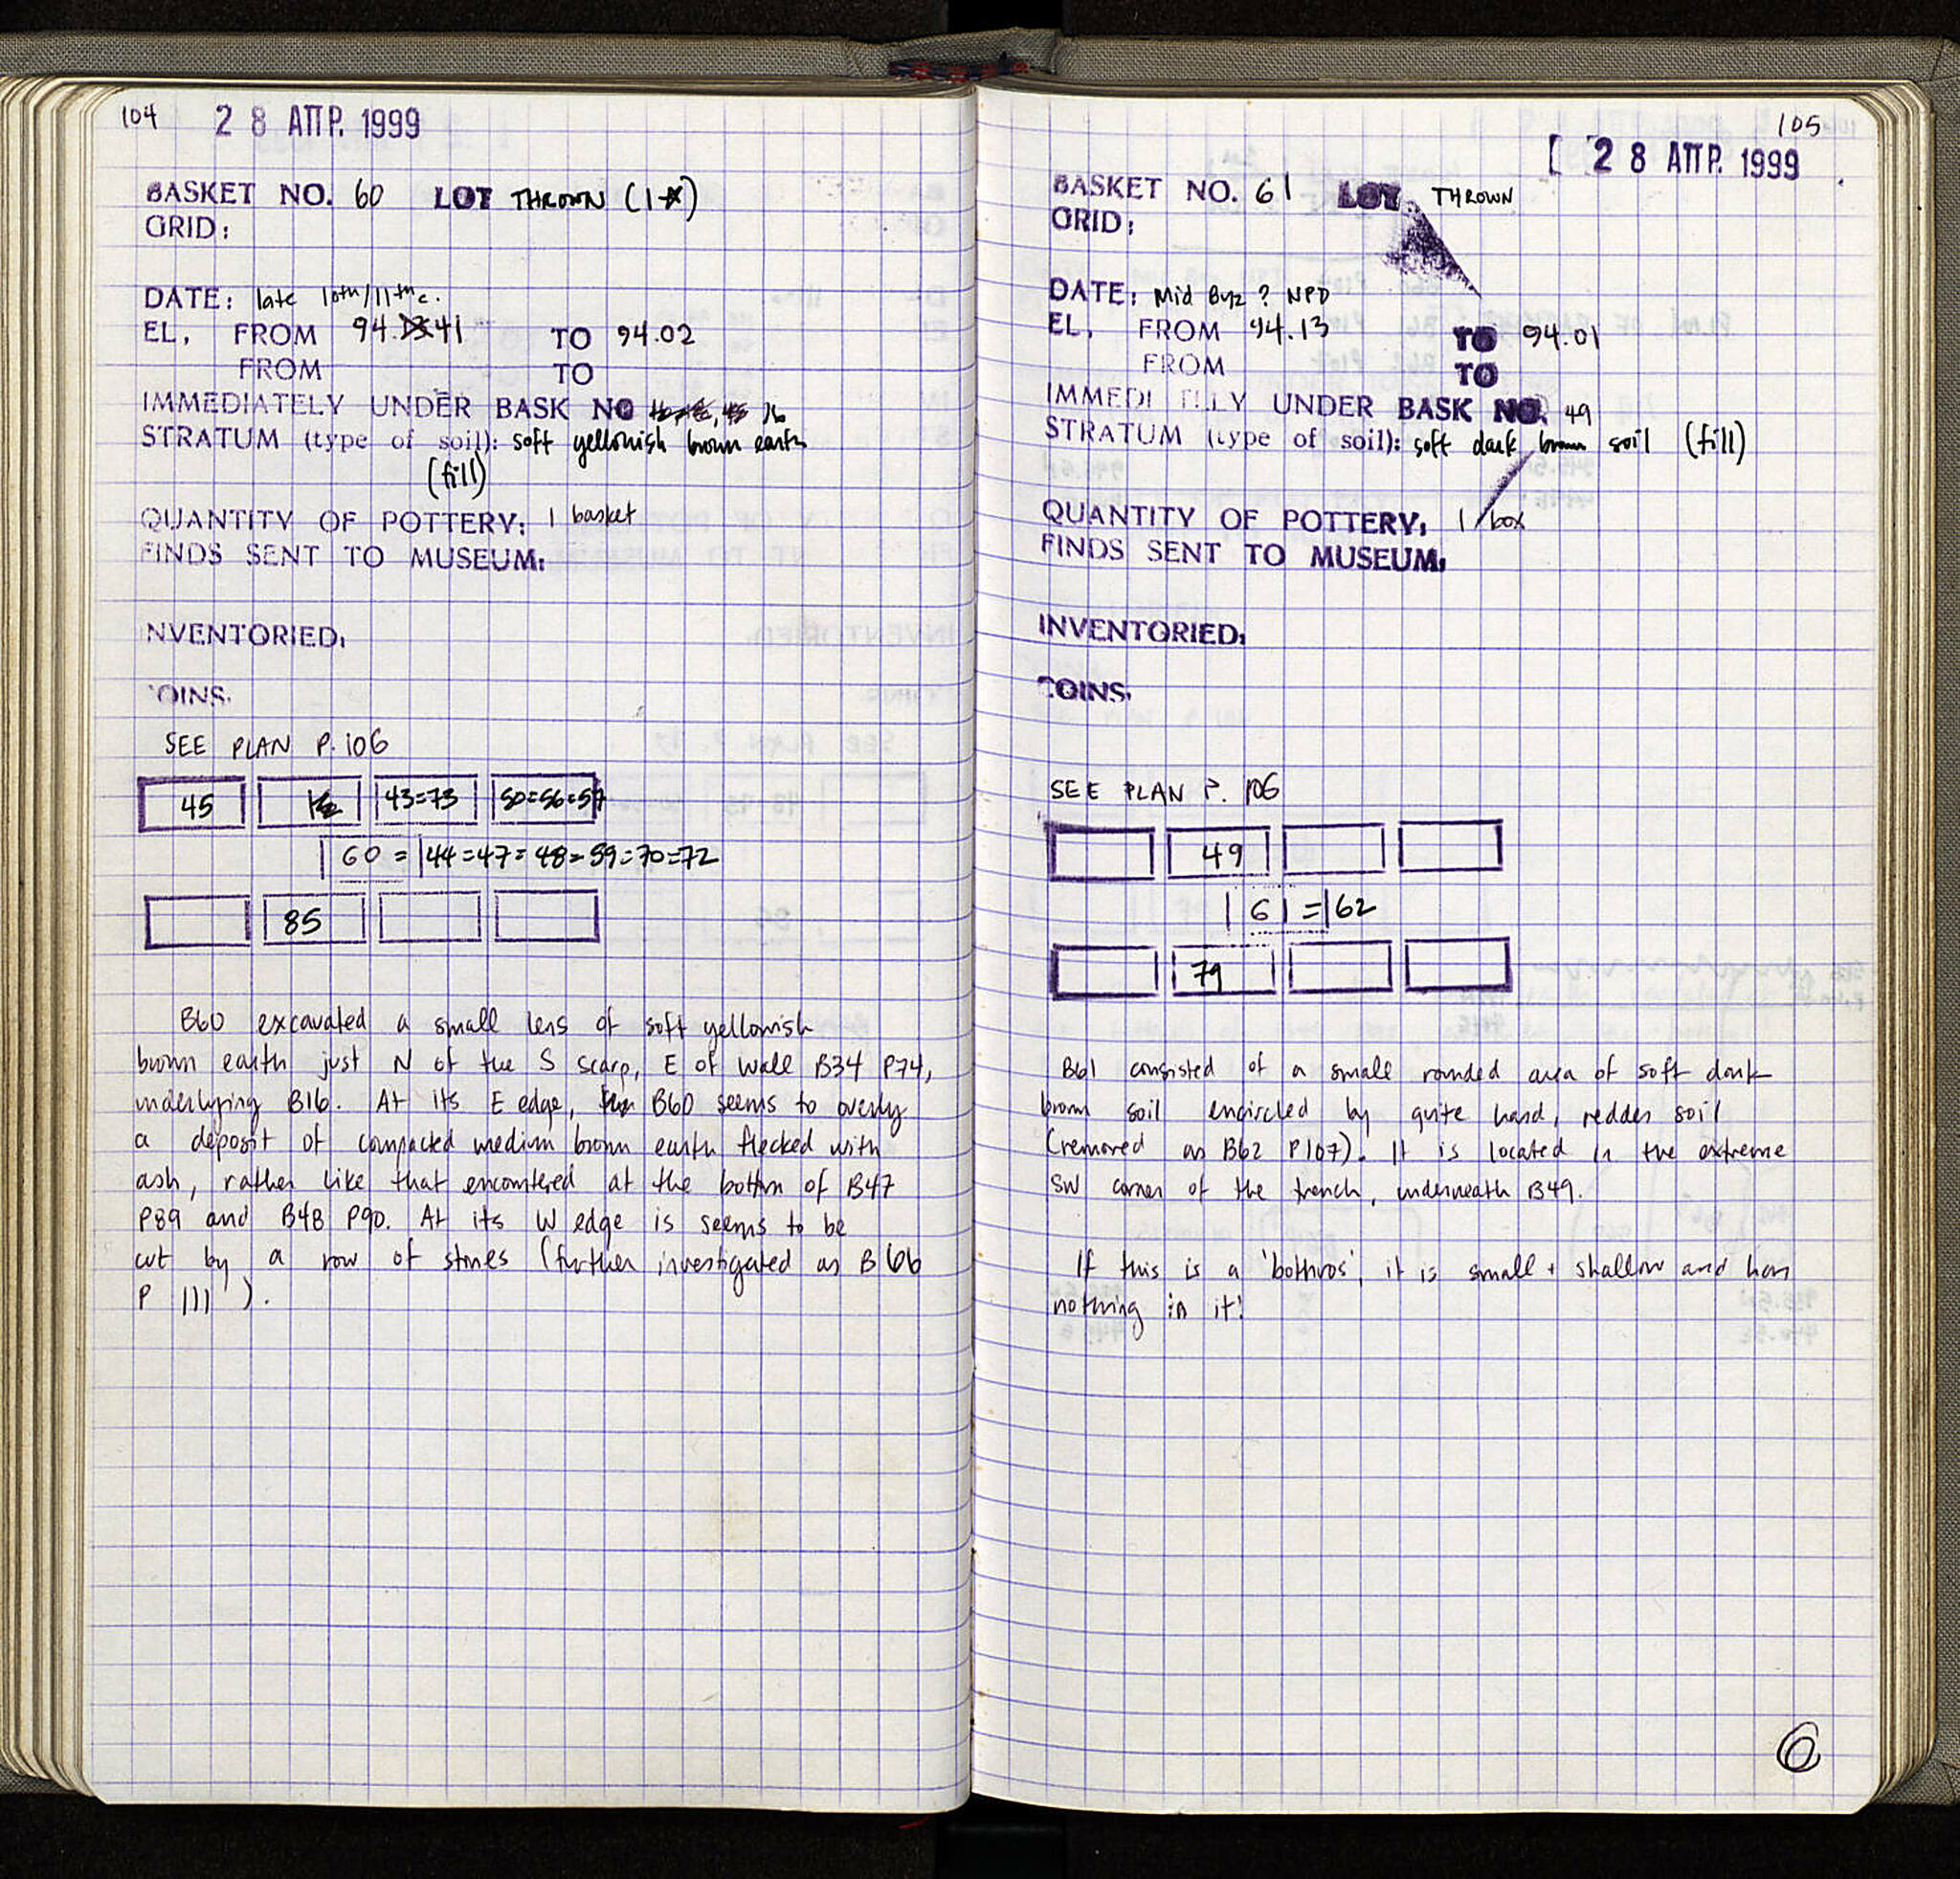 104 28 ΑΠΡ. 1999
BASKET NO. 60 LOT THROWN (1
GRID:
DATE: late 10th/11th c.
EL, FROM 94.41 TO 94.02
FROM TO
IMMEDIATELY UNDER BASK NO 16
STRATUM (type of soil): soft yellowish brown earth
(fill)
QUANTITY OF POTTERY: 1 basket
FINDS SENT TO MUSEUM:
NVENTORIED:
OINS.
SEE PLAN P. 106
45 16 43=73 50=56=57
60 = 44=47=48=59=70=72
85
B60 excavated a small lens of soft yellowish
brown earth just N of the S scarp, E of Wall B34 P74,
underlying B16. At its E edge, B60 seems to overly
a deposit of compacted medium brown earth flecked with
ash, rather like that encountered at the bottom of B47
P89 and B48 P90. At its W edge is seems to be
cut by a row of stones (further investigated as B66
P 111).
105
28 ΑΠΡ. 1999
BASKET NO. 61 LOT THROWN
GRID:
DATE: Mid Byz ? NPD
EL, FROM 94.13 TO 94.01
FROM TO
IMMEDI TELY UNDER BASK NO. 49
STRATUM (type of soil): soft dark brown soil (fill)
QUANTITY OF POTTERY: 1 box
FINDS SENT TO MUSEUM:
INVENTORIED:
COINS.
SEE PLAN P. 106
49
61 = 62
79
B61 consisted of a small rounded area of soft dark
brown soil encircled by quite hard, redder soil
(removed as B62 P107). It is located in the extreme
SW corner of the trench, underneath B49.
If this is a 'bothros', it is small + shallow and has
nothing in it!
6